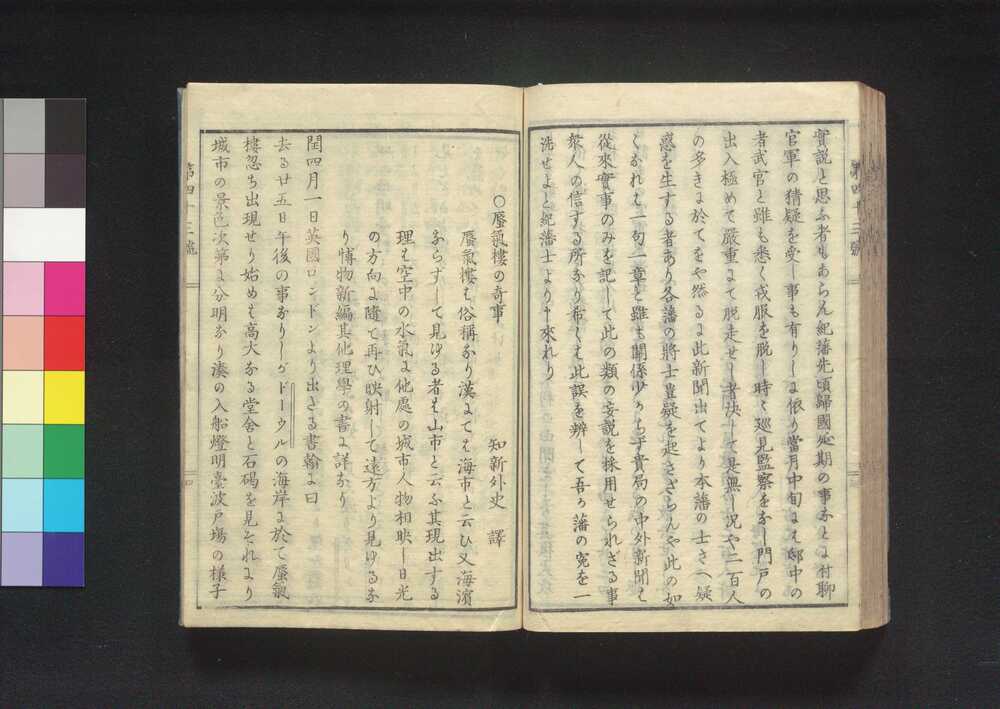 實説と思ふ者もあらん紀藩先頃歸國延期の事などに付聊
官軍の猜疑を受し事も有りしに依り當月中旬には邸中の
者武官と雖も悉く戎服を脱し時々巡見監察をなし門戸の
出入極めて嚴重にて脱走せし者決して是無し况や二百人
の多きに於てをや然るに此新聞出てより本藩の士さへ疑
惑を生する者あり各藩の將士豈疑を起さゞらんや此の如
くなれは一句一章と雖も關係少からず貴局の中外新聞は
從來實事のみを記して此の類の妄説を採用せられざる事
衆人の信する所なり希くは此誤を辨して吾が藩の寃を一
洗せよと紀藩士より申來れり
第四十三號
○蜃氣樓の奇事
知新外史 譯
蜃氣樓は俗稱なり漢にては海市と云ひ又海濱
ならずして見ゆる者は山市と云ふ其現出する
理は空中の水氣に他處の城市人物相映し日光
の方向に隨て再ひ映射して遠方より見ゆるな
り博物新編其他理學の書に詳なり
閏四月一日英國ロンドンより出さる書翰に曰
去る廿五日午後の事なりしがドーウルの海岸に於て蜃氣
樓忽ち出現せり始めは高大なる堂舍と石碣を見それより
城市の景色次第に分明なり湊の入船燈明臺波戸場の樣子
第四十三號